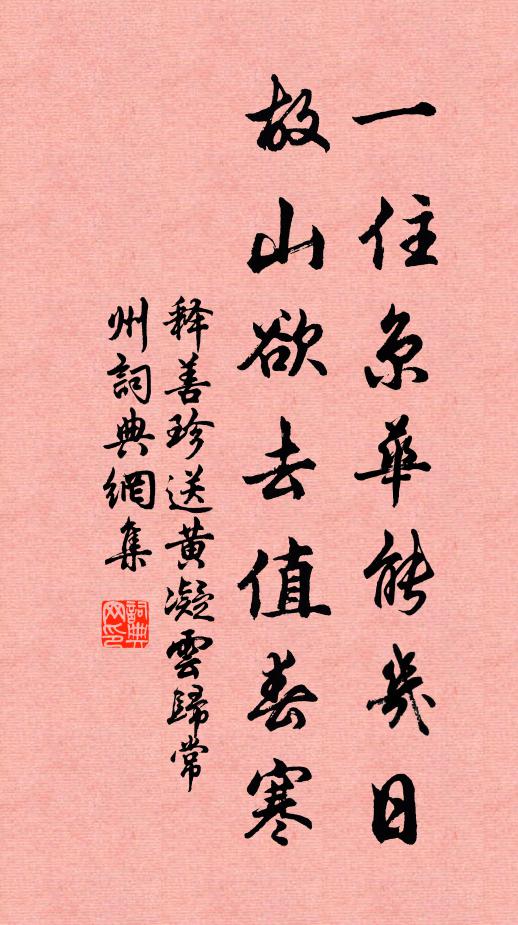 一住京華能幾日
故山欲去值春寒
释善珍送黄凝雲歸常
州詞典網集
詞典網印